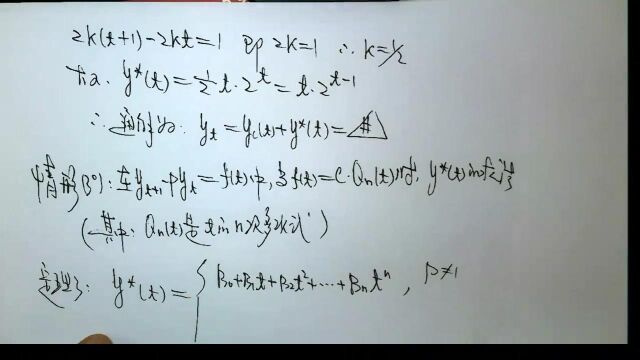 2k(t+1)-2kt=1 即 2k=1 ∴ k=1/2
故 y*(t)=1/2 t·2^t=t·2^{t-1}
∴ 通解为: y_t=y_c(t)+y*(t)=#
情形(3°): 在 y_{t+1}-py_t=f(t)中, 当f(t)=C·Q_n(t)时, y*(t)的
(其中: Q_n(t)是t的n次多项式)
定理3: y*(t)={ B_0+B_1t+B_2t^2+…+B_nt^n, p≠1